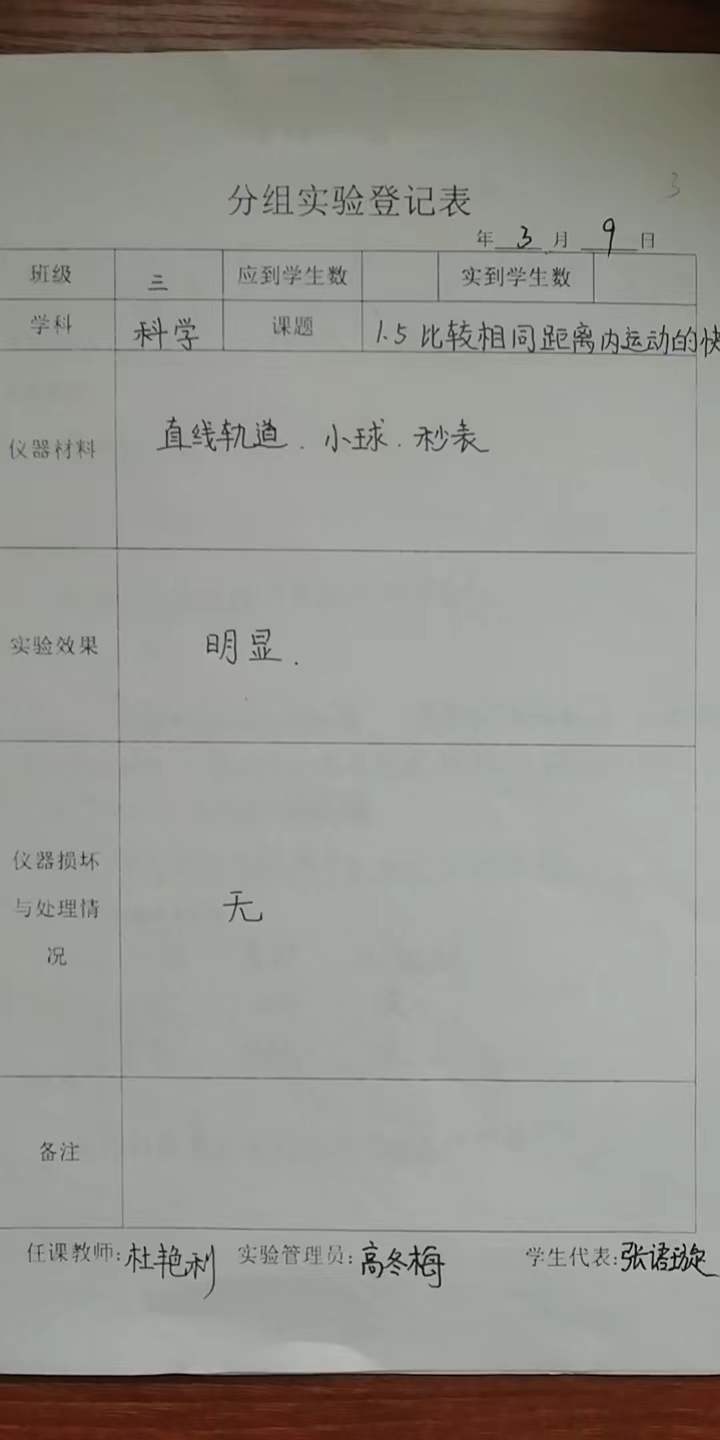 3
分组实验登记表
年 3 月 9 日
班级 三 应到学生数 实到学生数
学科 科学 课题 1.5 比较相同距离内运动的快
仪器材料 直线轨道.小球.秒表
实验效果 明显.
仪器损坏
与处理情 无
况
备注
任课教师:杜艳利 实验管理员:高冬梅 学生代表:张语璇